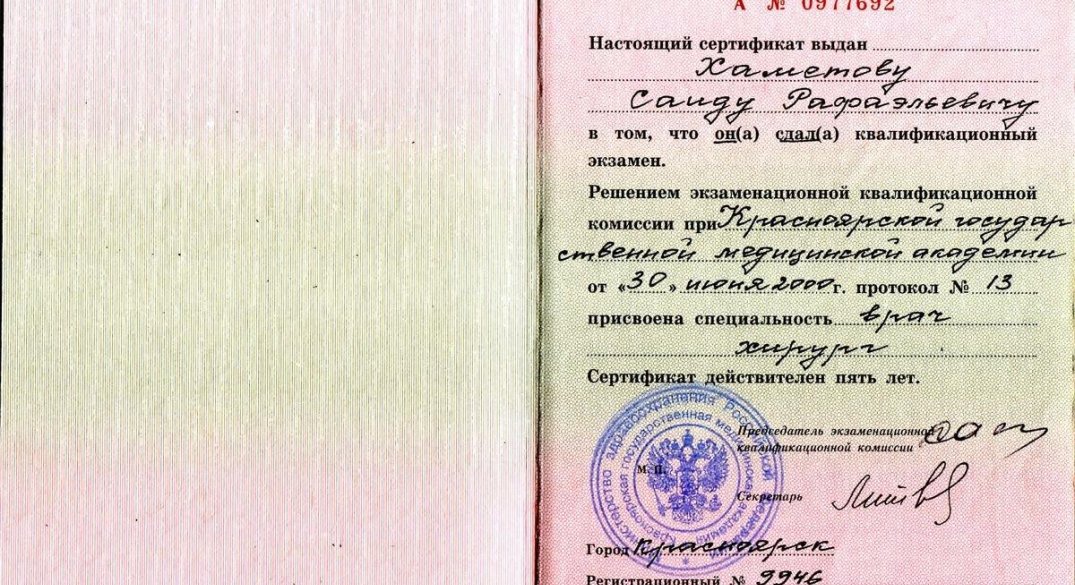 А № 0977692
Настоящий сертификат выдан
Хаметову
Саиду Рафаэльевичу
в том, что он(а) сдал(а) квалификационный
экзамен.
Решением экзаменационной квалификационной
комиссии при Красноярской государ
ственной медицинской академии
от «30» июня 2000 г. протокол № 13
присвоена специальность врач
хирург
Сертификат действителен пять лет.
Министерство здравоохранения Российской Федерации
Красноярская государственная медицинская академия
Председатель экзаменационной
квалификационной комиссии
М. П.
Секретарь
Город Красноярск
Регистрационный № 9946